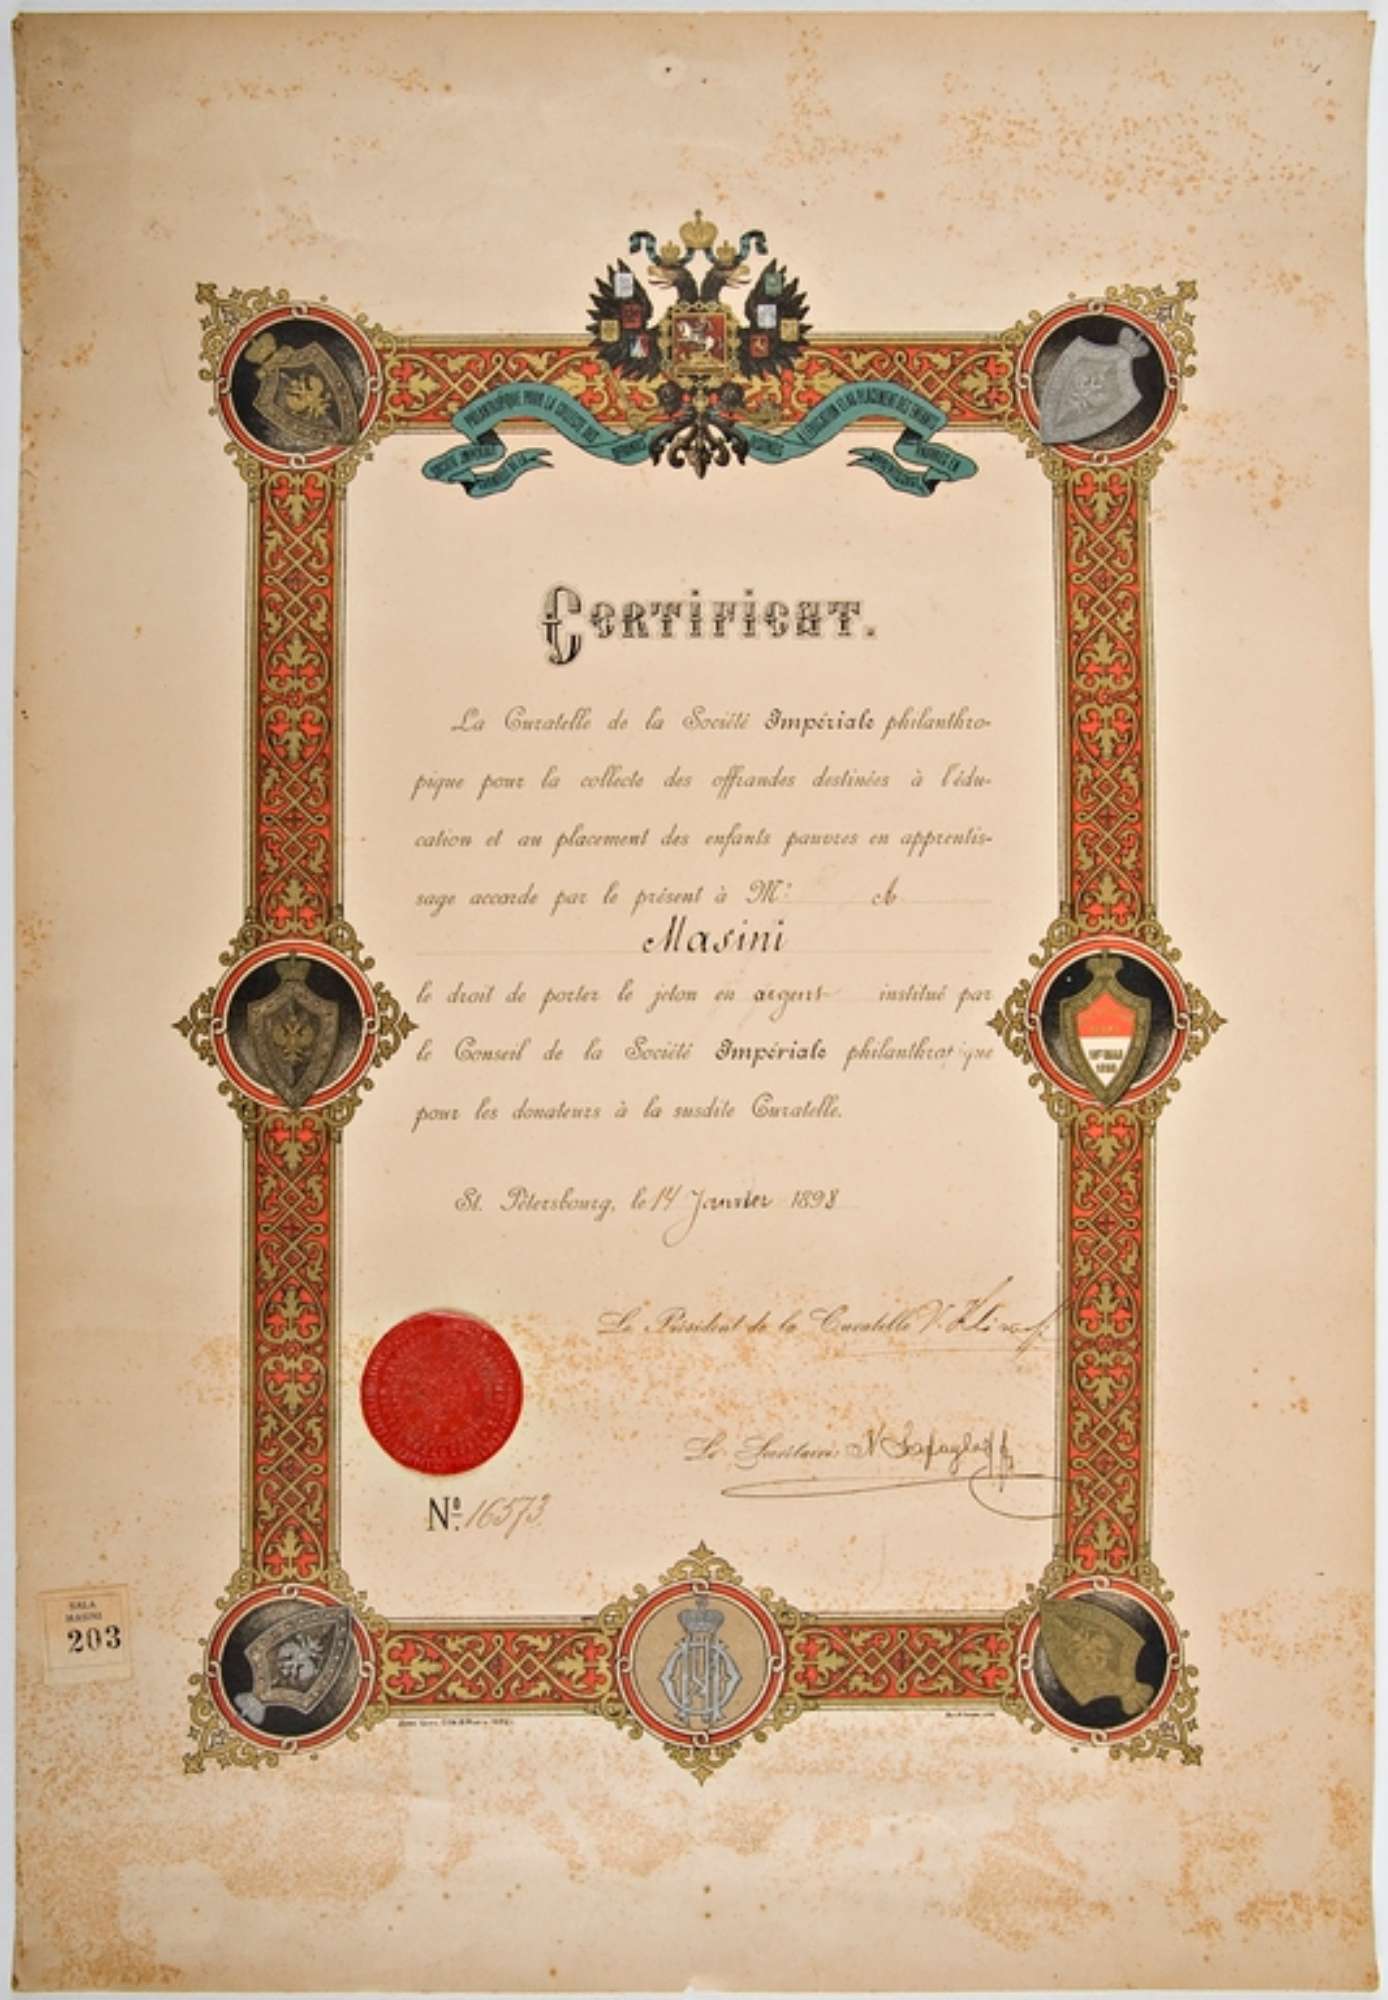 PHILANTROPIQUE POUR LA COLLECTE DES
EDUCATION ET AU PLACEMENT DES ENFANTS
Certificat.
La Curatelle de la Société Impériale philanthro-
pique pour la collecte des offrandes destinées à l'édu-
cation et au placement des enfants pauvres en apprentis-
sage accorde par le présent à Mr A
Masini
le droit de porter le jeton en argent institué par
le Conseil de la Société Impériale philanthropique
pour les donateurs à la susdite Curatelle.
St. Pétersbourg, le 14 Janvier 1898
Le Président de la Curatelle V.
Le Secrétaire N
Nº. 16573
SALA
MASINI
203